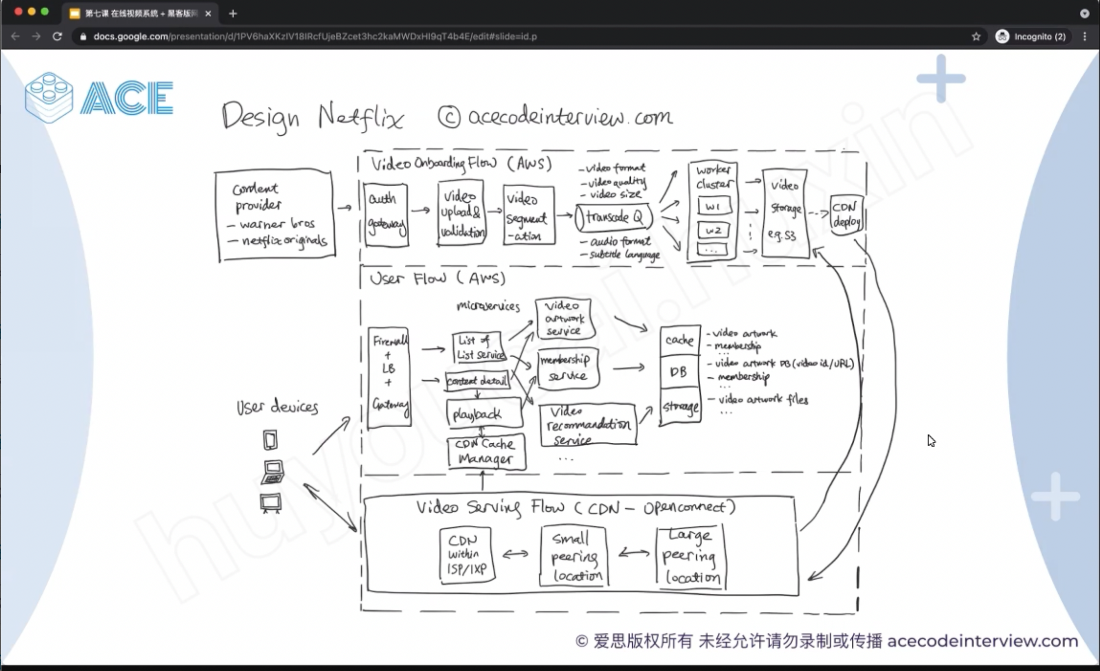 第七课 在线视频系统 + 黑客版
docs.google.com/presentation/d/1PV6haXKzIV18IRcfUjeBZcet3hc2kaMWDxHI9qT4b4E/edit#slide=id.p
Incognito (2)
ACE
Design Netflix © acecodeinterview.com
Video Onboarding Flow (AWS)
Content
provider
- warner bros
- netflix originals
auth
gateway
video
upload &
validation
video
segment
-ation
- video format
- video quality
- video size
transcode Q
- audio format
- subtitle language
worker
cluster
w1
w2
...
video
storage
e.g. S3
CDN
deploy
User Flow (AWS)
microservices
Firewall
+
LB
+
Gateway
List of
List service
content detail
playback
CDN Cache
Manager
video
artwork
service
membership
service
Video
recommandation
service
...
cache
DB
storage
- video artwork
- membership
...
- video artwork DB (video id/URL)
- membership
...
- video artwork files
...
User devices
Video Serving Flow (CDN - Openconnect)
CDN
within
ISP/IXP
Small
peering
location
Large
peering
location
© 爱思版权所有 未经允许请勿录制或传播 acecodeinterview.com